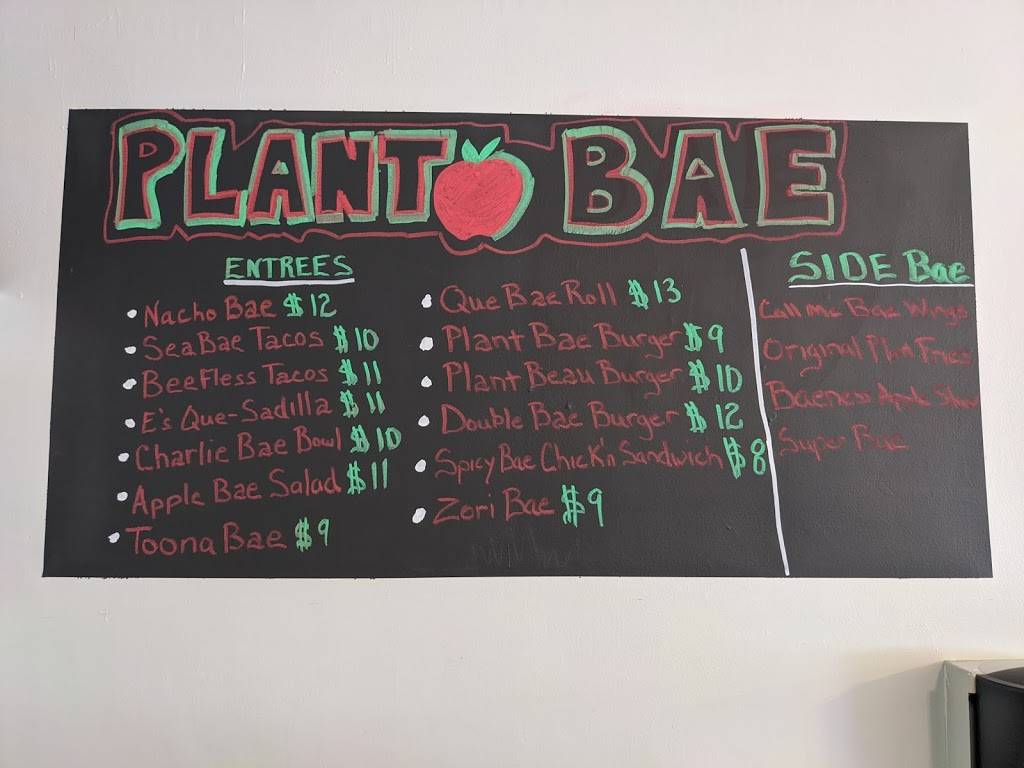 PLANT BAE
ENTREES
Nacho Bae $12
SeaBae Tacos $10
Beefless Tacos $11
E's Que-Sadilla $11
Charlie Bae Bowl $10
Apple Bae Salad $11
Toona Bae $9
Que Bae Roll $13
Plant Bae Burger $9
Plant Beau Burger $10
Double Bae Burger $12
Spicy Bae Chick'n Sandwich $8
Zori Bae $9
SIDE Bae
Call Me Bae Wings
Original Plant Fries
Apple Slaw
Super Bae